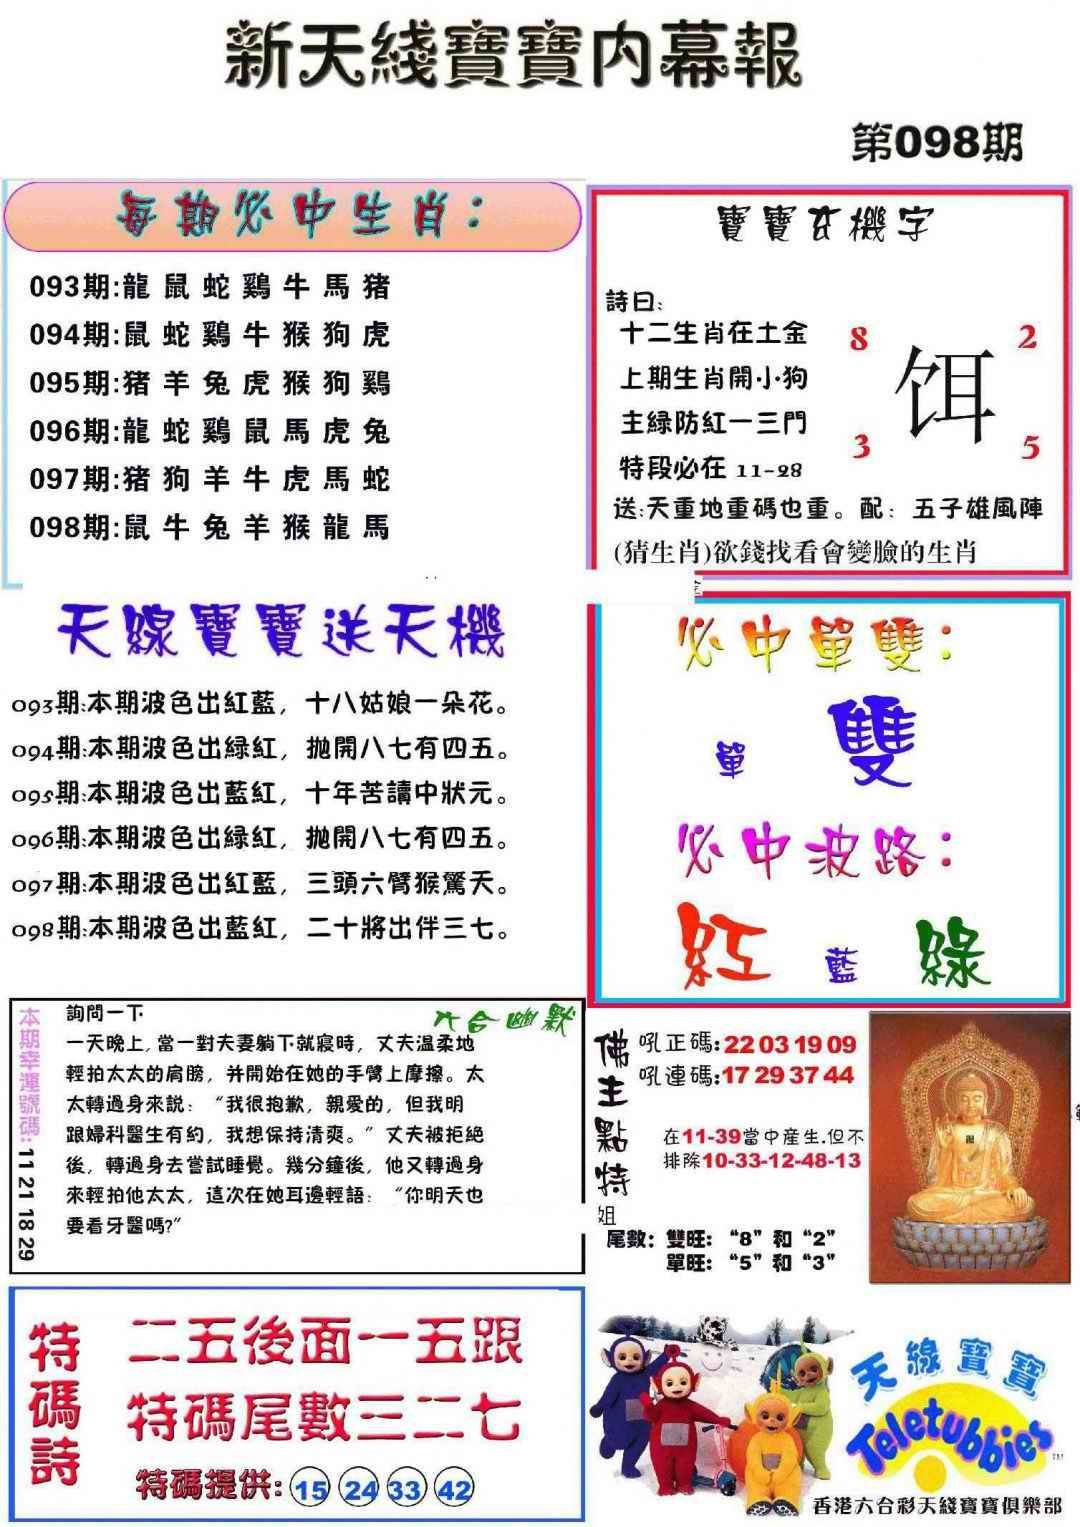 新天綫寶寶内幕報
第098期
每期必中生肖：
093期:龍 鼠 蛇 鷄 牛 馬 猪
094期:鼠 蛇 鷄 牛 猴 狗 虎
095期:猪 羊 兔 虎 猴 狗 鷄
096期:龍 蛇 鷄 鼠 馬 虎 兔
097期:猪 狗 羊 牛 虎 馬 蛇
098期:鼠 牛 兔 羊 猴 龍 馬
寶寶玄機字
詩曰:
十二生肖在土金
上期生肖開小狗
主緑防紅一三門
特段必在 11-28
8 2
饵
3 5
送:天重地重碼也重。配：五子雄風陣
(猜生肖)欲錢找看會變臉的生肖
天線寶寶送天機
093期:本期波色出紅藍，十八姑娘一朵花。
094期:本期波色出緑紅，拋開八七有四五。
095期:本期波色出藍紅，十年苦讀中狀元。
096期:本期波色出緑紅，拋開八七有四五。
097期:本期波色出紅藍，三頭六臂猴驚天。
098期:本期波色出藍紅，二十將出伴三七。
必中單雙：
單 雙
必中波路：
紅 藍 綠
本期幸運號碼: 11 21 18 29
六合幽默
詢問一下
一天晚上,當一對夫妻躺下就寢時，丈夫溫柔地
輕拍太太的肩膀，并開始在她的手臂上摩擦。太
太轉過身來説：“我很抱歉，親愛的，但我明
跟婦科醫生有約，我想保持清爽。”丈夫被拒絶
後，轉過身去嘗試睡覺。幾分鐘後，他又轉過身
來輕拍他太太，這次在她耳邊輕語：“你明天也
要看牙醫嗎?”
佛主點特
姐
吼正碼:22 03 19 09
吼連碼:17 29 37 44
在11-39當中産生.但不
排除10-33-12-48-13
尾數：雙旺：“8”和“2”
單旺：“5”和“3”
特碼詩
二五後面一五跟
特碼尾數三二七
特碼提供: 15 24 33 42
天線寶寶
Teletubbies
TM
香港六合彩天綫寶寶俱樂部